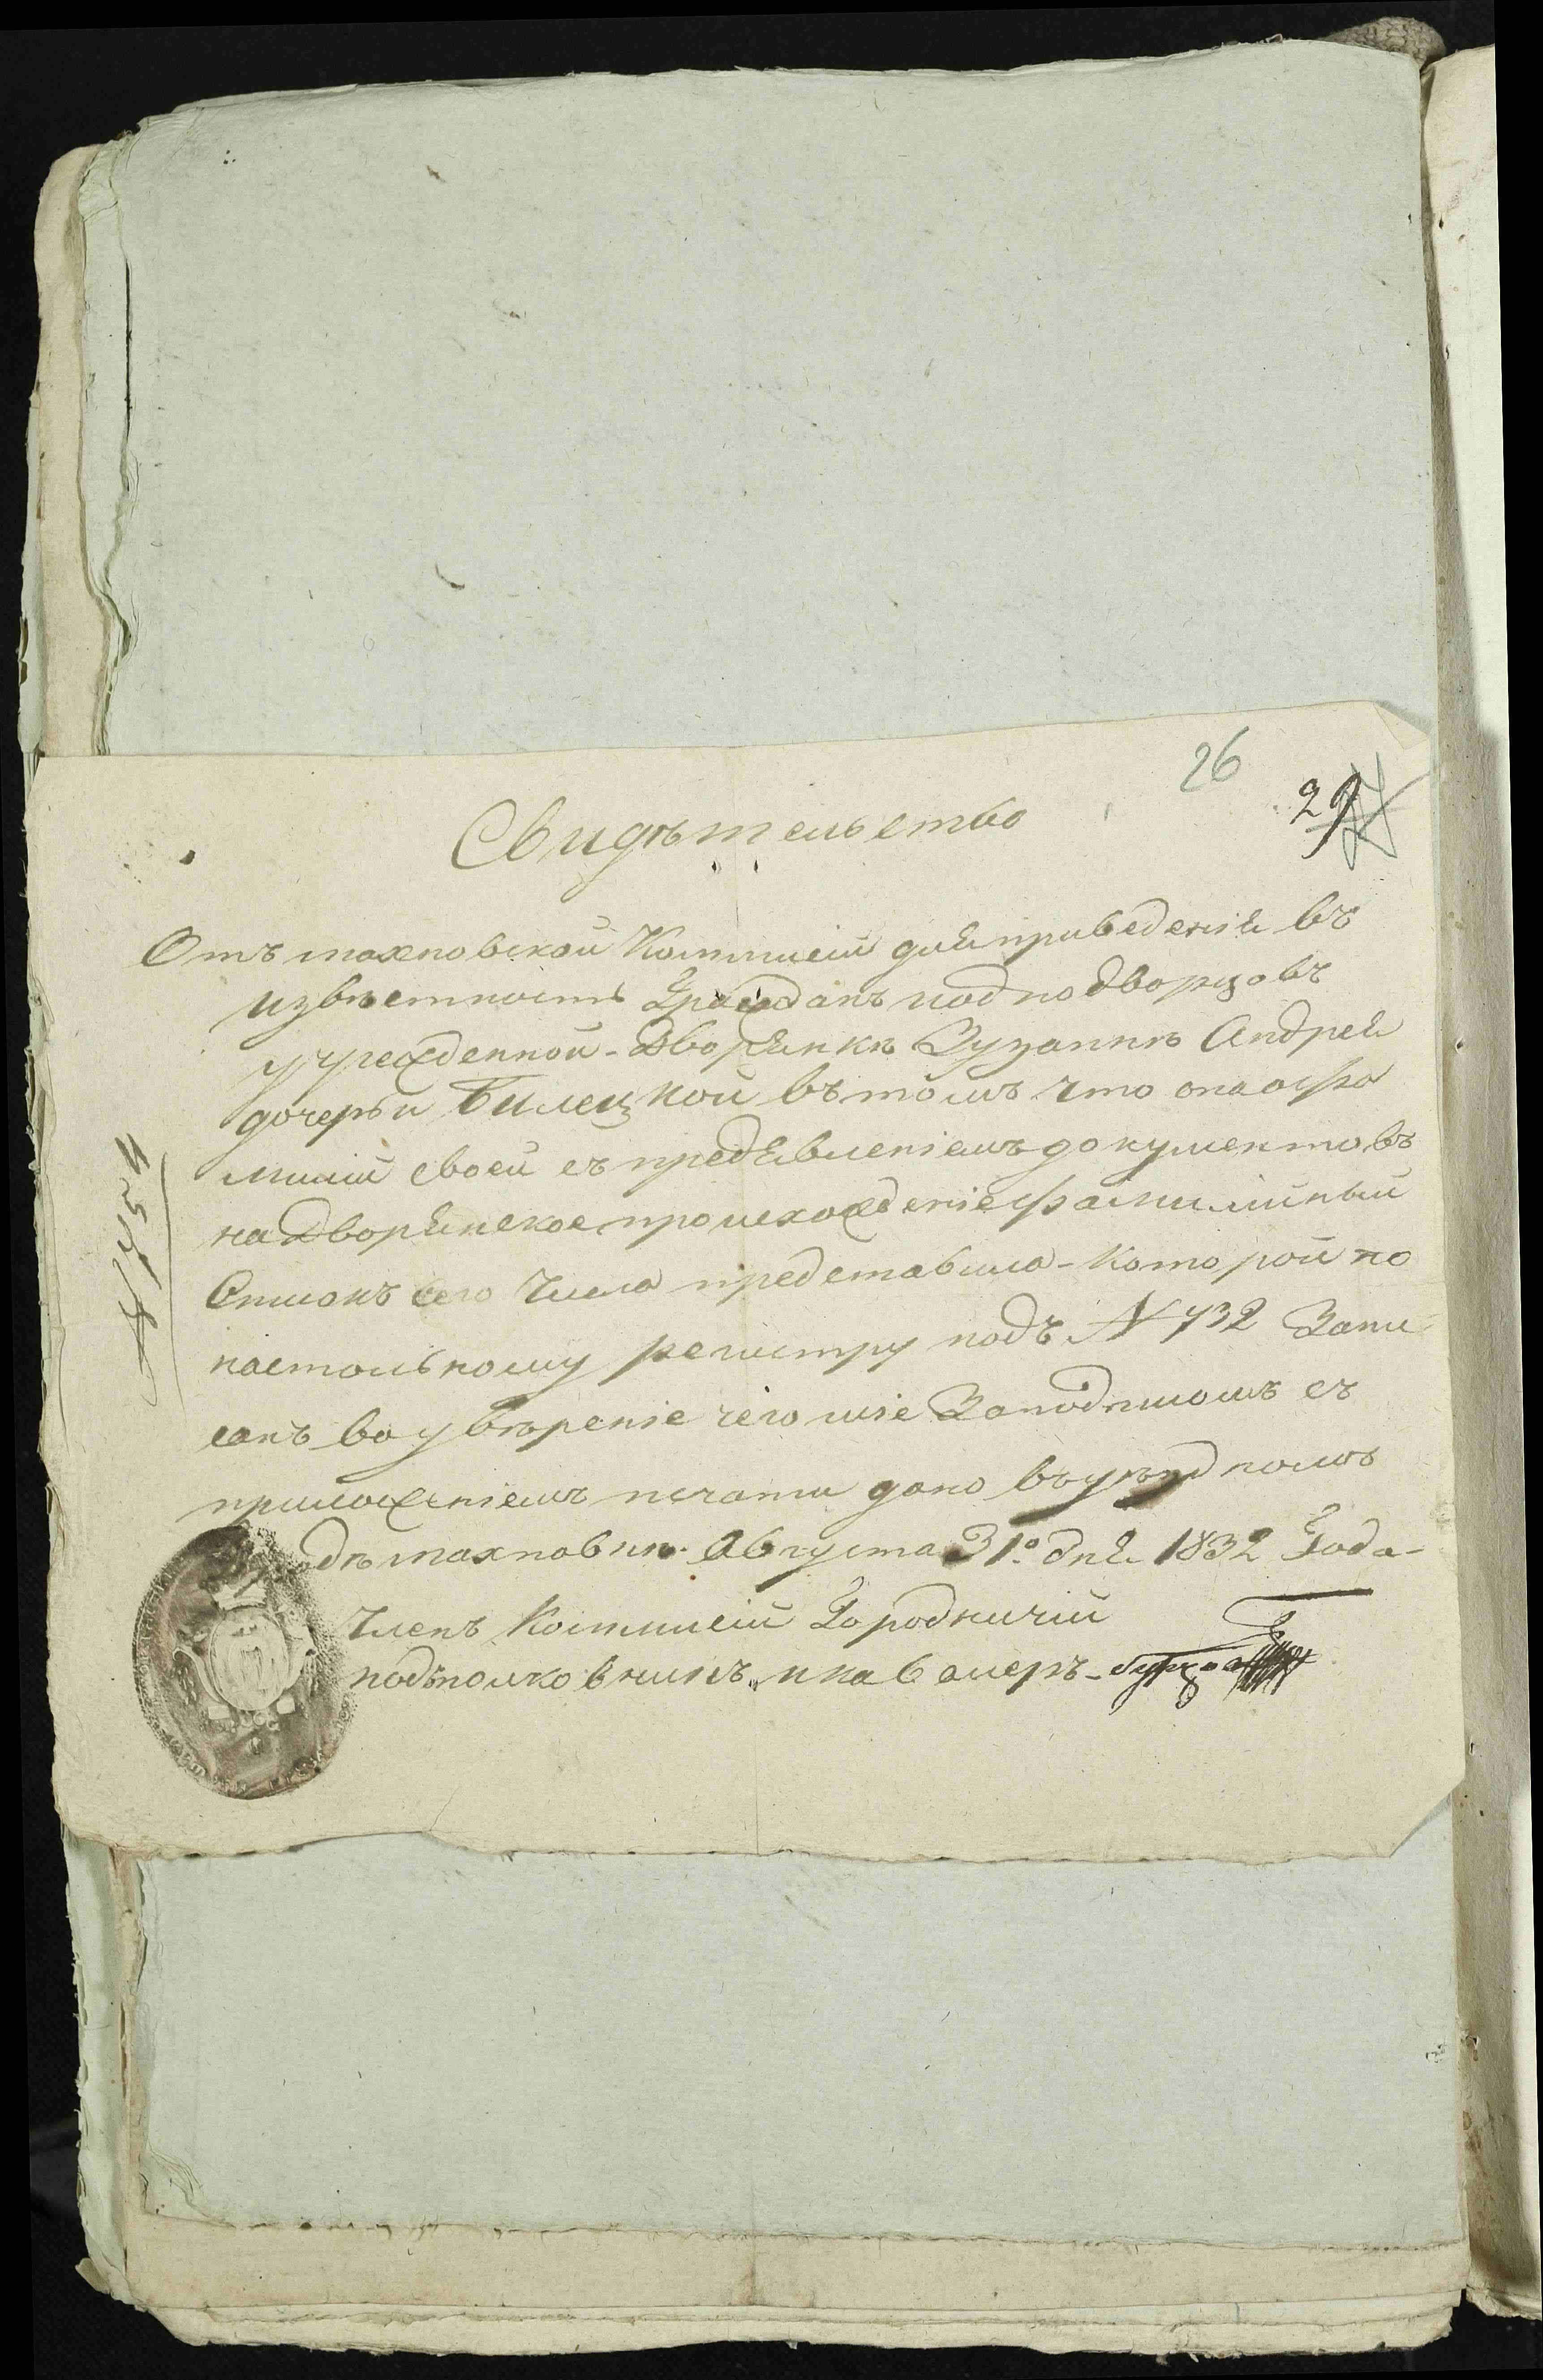 26
29
Свидѣтельство
Отъ махновской Коммисіи для приведенія въ
извѣстность Гражданъ иоднодворцовъ
учрежденной - Дворянкѣ Зузаннѣ Андрея
дочерьи Билецкой въ томъ что она офа
миліи своей съ предъявленіемъ документовъ
на Дворянское происхожденіе фамилійный
Списокъ сего Числа представила - Которой по
настольному регистру подъ № 732 Запи
санъ во увѣреніе чего сіе Заподписомъ съ
приложеніемъ печати дано въ уѣздномъ
махновки. Августа 31го дня 1832 Года -
Членъ Коммисіи Городничій
подъполковникъ и кавалеръ -